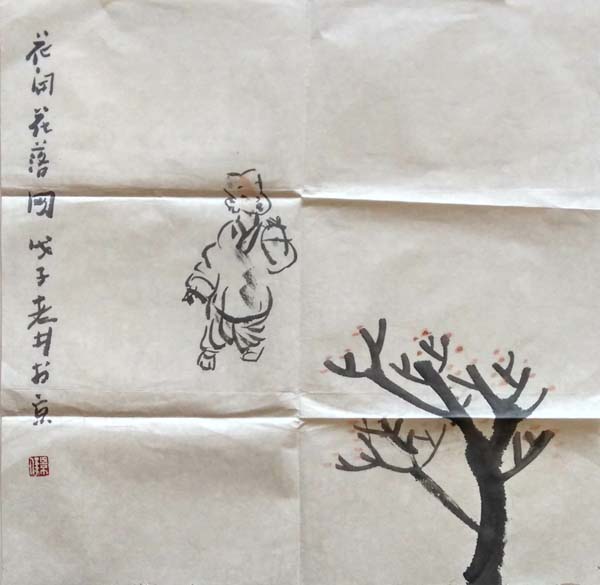 花开花落图戊子老井于京